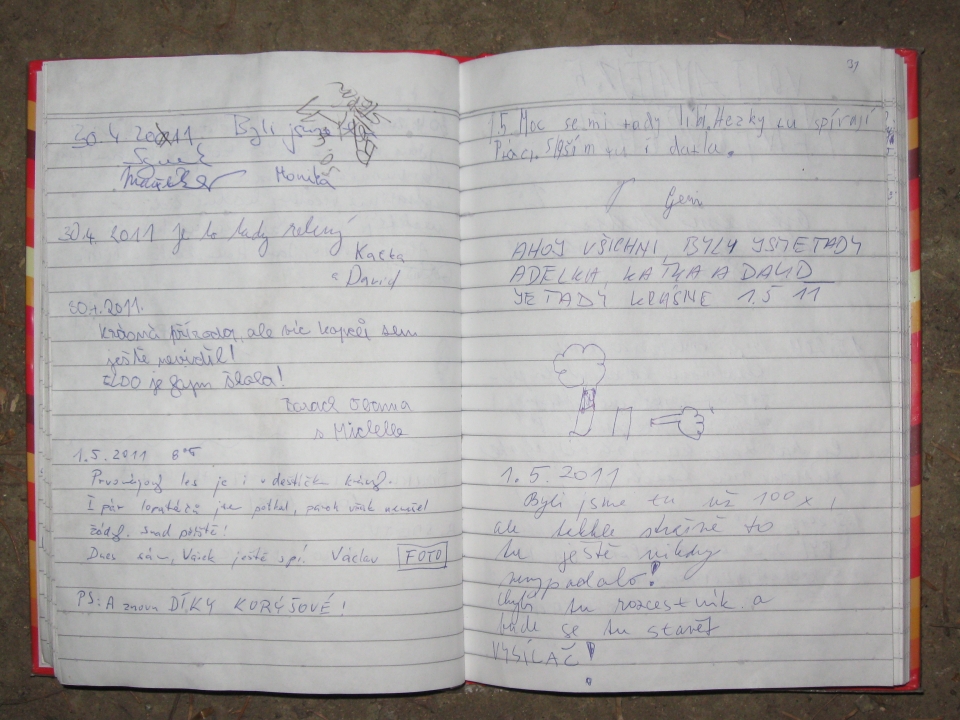 30.4 2011. Byli jsme
Monika
30.4. 2011 je to tady
Katka
a David
30.4.2011.
Krásná příroda, ale víc kopců sem
ještě neviděl!
je fajn škola!
Barack Obama
s Michelle
1.5.2011 8
les je i v deštíčku krásný.
I pár jsem potkal, párek však neměl
žádný, snad příště!
Dnes sám, Vašek ještě spí. Václav FOTO
PS: A znovu DÍKY KORÝŠOVÉ!
31
1.5. Moc se mi tady líbí. Hezky tu zpívají
Ptáci. Slyším tu i datla.
AHOJ VŠICHNI, BYLY JSME TADY
ADELKA, KAŤKA A DAVID
JE TADY KRÁSNE 1.5 11
1.5.2011
Byli jsme tu už 100x,
ale takhle strašně to
tu ještě nikdy
nevypadalo!
Chybí tu rozcestník a
bude se tu stavět
VYSÍLAČ!